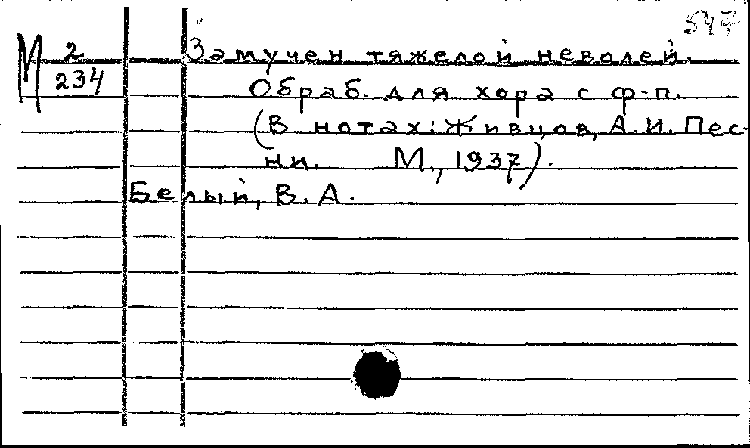 547
М 2 Замучен тяжелой неволей.
234 Обраб. для хора с ф-п.
(В нотах: Живцов, А.И. Пес-
ни. М., 1937).
Белый, В.А.